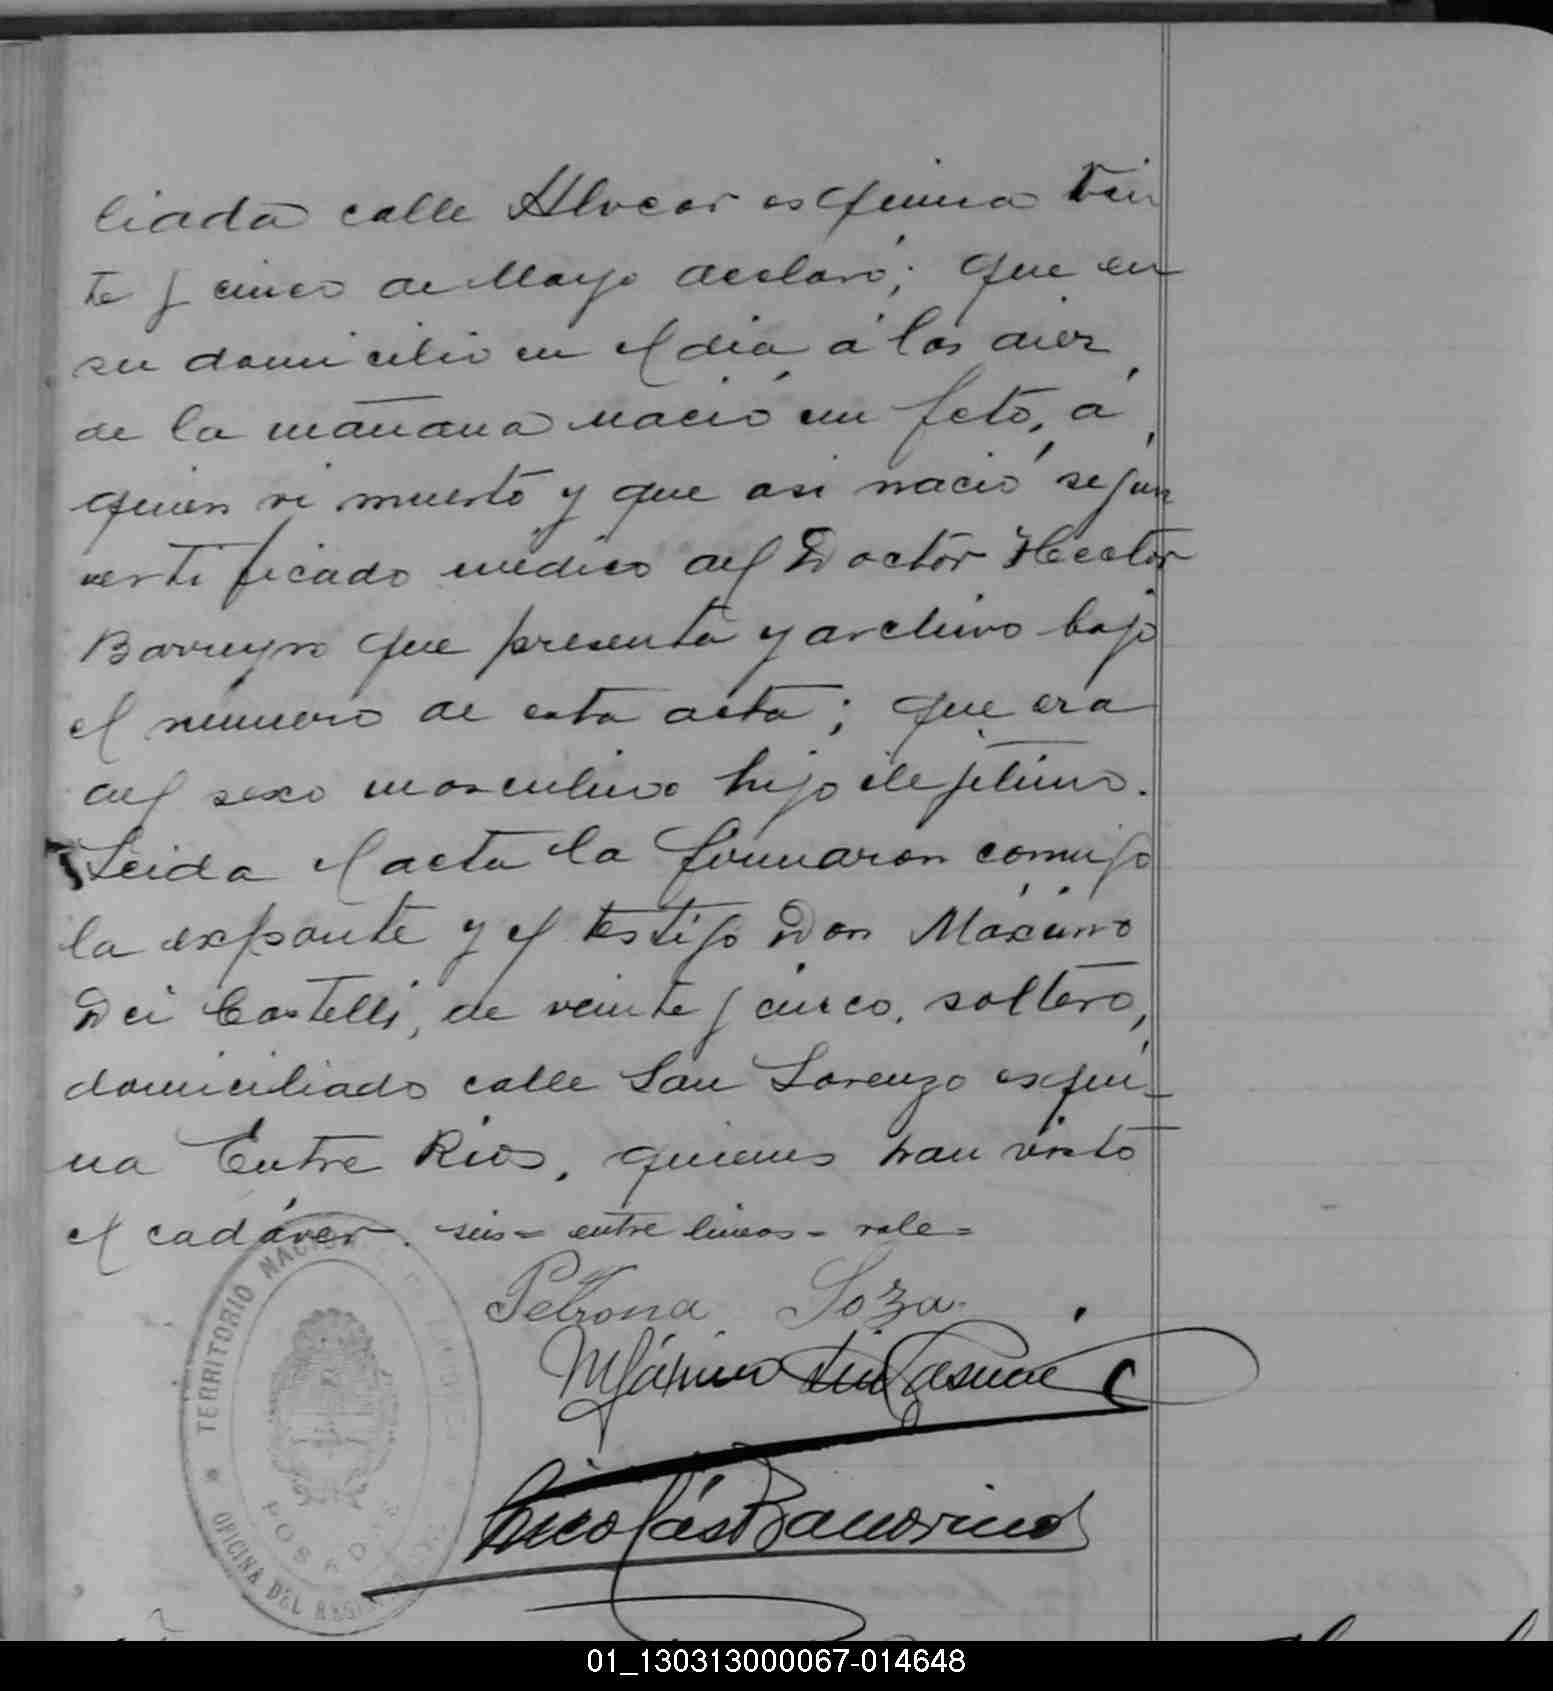 liada calle Alvear esquina Vein
te y cinco de Mayo declaró; que en
su domicilio en el dia á las diez
de la mañana nació un feto, á
quien vi muerto y que asi nació segun
certificado médico del Doctor Hector
Barreyro que presenta y archivo bajo
el número de esta acta; que era
del sexo masculino hijo ilejitimo.
Leida el acta la firmaron conmigo
la exponte y el testigo Don Máximo
Dei Castelli, de veinte y cinco, soltero,
domiciliado calle San Lorenzo esqui-
na Entre Rios, quienes han visto
el cadáver. seis = entre lineas = vale =
Petrona Soza
Máximo
Nicolás
TERRITORIO NACIONAL DE MISIONES
POSADAS
OFICINA DEL REGISTRO
01_130313000067-014648